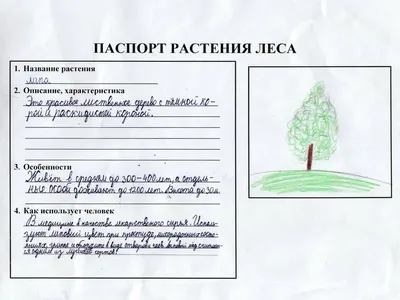 ПАСПОРТ РАСТЕНИЯ ЛЕСА
1. Название растения
липа
2. Описание, характеристика
Это красивое лиственное дерево с тёмной ко-
рой и раскидистой короной.
3. Особенности
Живёт в среднем до 300-400 лет, а отдель-
ные особи доживают до 1200 лет. Высота до 30м.
4. Как использует человек
В медицине в качестве лекарственного сырья. Исполь-
зуют липовый цвет при простуде, лихорадочных состо-
яниях, гриппе и в виде чаёв. мёд считается
одним из лучших сортов!